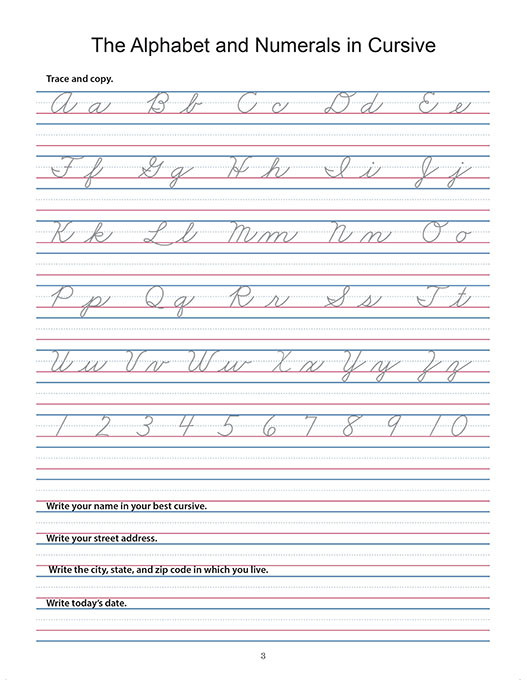 The Alphabet and Numerals in Cursive
Trace and copy.
A a B b C c D d E e
F f G g H h I i J j
K k L l M m N n O o
P p Q q R r S s T t
U u V v W w X x Y y Z z
1 2 3 4 5 6 7 8 9 10
Write your name in your best cursive.
Write your street address.
Write the city, state, and zip code in which you live.
Write today's date.
3